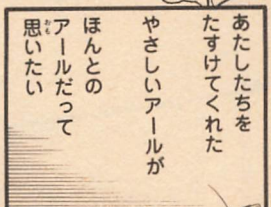 あたしたちを
たすけてくれた
やさしいアールが
ほんとの
アールだって
思いたい